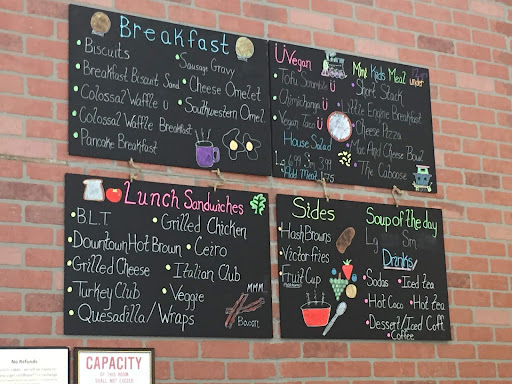 Breakfast
Biscuits
Sausage Gravy
Breakfast Biscuit Sand
Cheese Omelet
Colossal Waffle Ü
Southwestern Omel
Colossal Waffle Breakfast
Pancake Breakfast
Ü Vegan
Tofu Scramble Ü
Chimichanga Ü
Vegan Taco Ü
House Salad
Lg 6.99 Sm 3.99
Add Meat 1.75
Mini Kids Meal
under
Short Stack
Little Engine Breakfast
Cheese Pizza
Mac And Cheese Bowl
The Caboose
Lunch Sandwiches
B.L.T.
Grilled Chicken
Downtown Hot Brown
Ceiro
Grilled Cheese
Italian Club
Turkey Club
Veggie
MMM
Quesadilla/Wraps
Bacon
Sides
Hash Browns
Victor fries
Fruit Cup
Soup of the day
Lg Sm
Drinks
Sodas
Iced tea
Hot Coco
Hot tea
Dessert/Iced Coff
Coffee
No Refunds
CAPACITY
OF THIS ROOM
SHALL NOT EXCEED